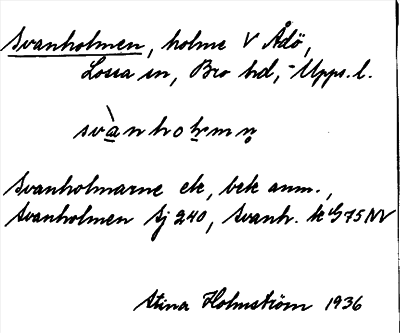 Svanholmen, holme V Ådö,
Lossa sn, Bro hd, Upps. l.
svànholmn̥
Svanholmarne ek, bek anm.,
Svanholmen Sj 240, Svanh. k 75 NV
Stina Holmström 1936